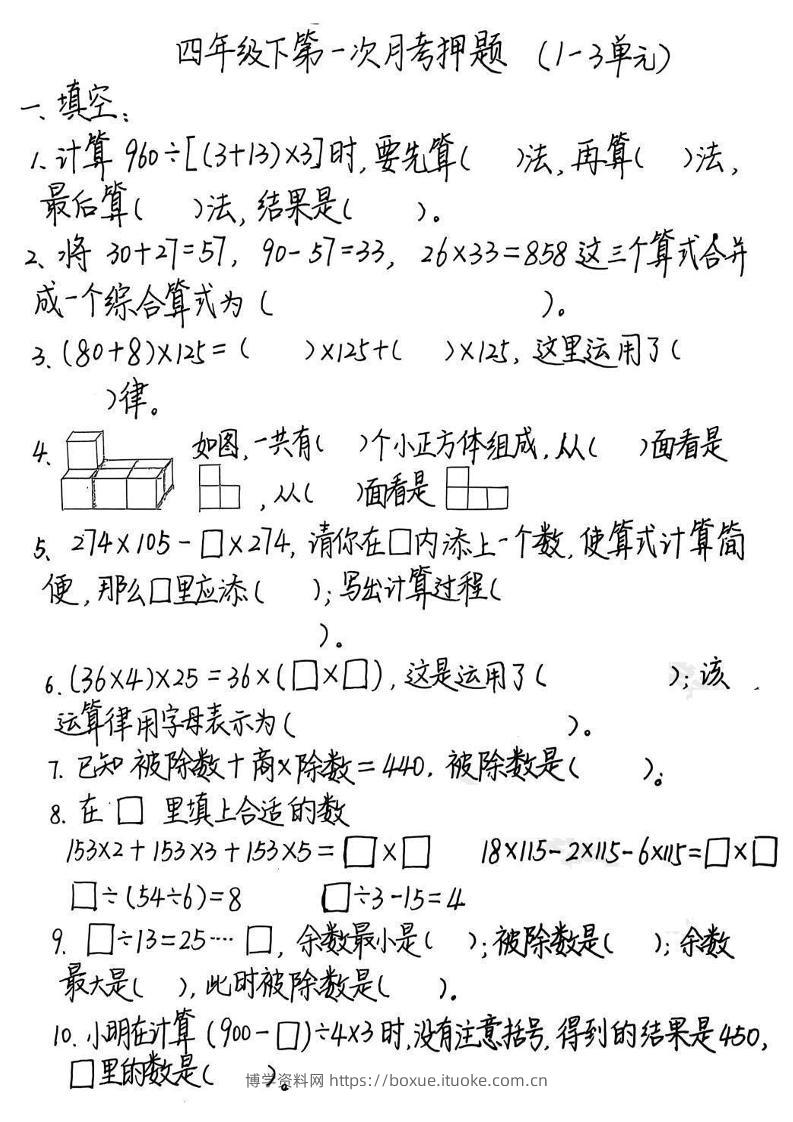 四年级下第一次月考押题 (1-3单元)
一、填空:
1、计算 960÷[(3+13)×3]时,要先算(  )法,再算(  )法,
最后算(  )法,结果是(  )。
2、将 30+27=57, 90-57=33, 26×33=858 这三个算式合并
成一个综合算式为(  )。
3、(80+8)×125=(  )×125+(  )×125, 这里运用了(
)律。
4、 如图,一共有(  )个小正方体组成,从(  )面看是
,从(  )面看是
5、274×105-□×274, 请你在□内添上一个数,使算式计算简
便,那么□里应添(  );写出计算过程(
)。
6、(36×4)×25=36×(□×□),这是运用了(  );该
运算律用字母表示为(  )。
7. 已知 被除数+商×除数=440, 被除数是(  )。
8. 在 □ 里填上合适的数
153×2+153×3+153×5=□×□  18×115-2×115-6×115=□×□
□÷(54÷6)=8  □÷3-15=4
9. □÷13=25····□, 余数最小是(  );被除数是(  );余数
最大是(  ),此时被除数是(  )。
10. 小明在计算 (900-□)÷4×3时,没有注意括号,得到的结果是450,
□里的数是(  )。
博学资料网 https://boxue.ituoke.com.cn